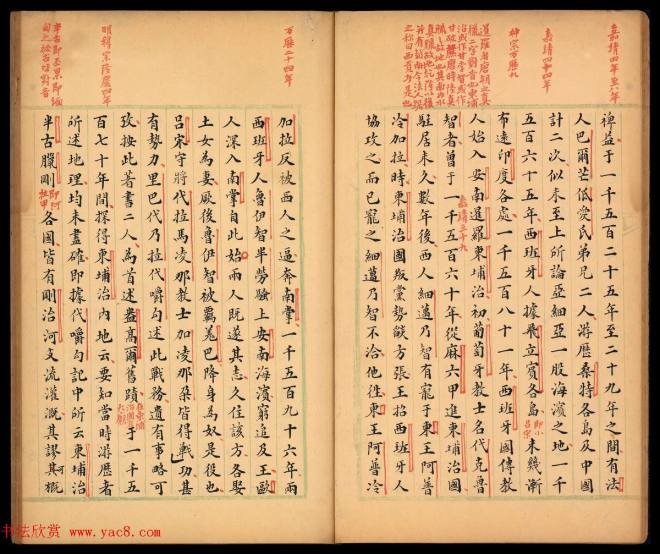 嘉靖四年至八年
嘉靖四十四年
神宗万曆九
裨益于一千五百二十五年至二十九年之間有法
人巴爾芒低愛氏弟兄二人游歷桑特各島及中國
計二次似未至上所論亞細亞一股海濱之地一千
五百六十五年西班牙人據飛立賓各島即小呂宋未幾漸
布遠印度各處一千五百八十一年西班牙國傳教
人始入安南暹羅東埔治初葡萄牙教士名代克魯
智者曾于一千五百六十年從麻六甲進東埔治國
嘉靖三十九
駐居未久數年後西人細蘆乃智有寵于東王阿普
冷加拉時東埔治國叛黨勢燄方張王招西班牙人
協攻之而已寵之細蘆乃智不洽他徃東王阿普冷
万曆二十四年
明穆宗隆慶四年
加拉反被西人之逼奔南掌一千五百九十六年兩
西班牙人魯伊智半勞騷上安南海濱窮追及王歐
人深入南掌自此始兩人既遂其志久住該方各娶
土女為妻厥後魯伊智被羈羗巴降身為奴是役也
呂宋守將代拉馬凌那教士加凌那朵皆得戰功甚
有勢力里巴代乃拉代嚼勾述此戰務遺有事略可
攷按此著書二人為首述益高爾舊蹟于一千五
百七十年間探得東埔治內地云要知當時游歷者
所述地理均未盡確即據代嚼勾記中所云東埔治
半古臘剛即阿杜甲各國皆有剛治河文流灌溉其謬其概
河
书法欣赏 www.yac8.com